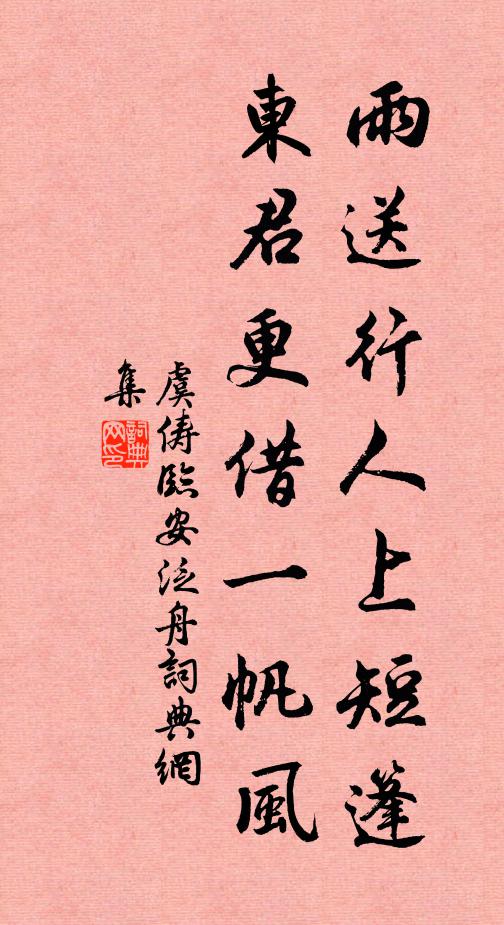 雨送行人上短篷
東君更借一帆風
虞儔臨安泛舟詞典網
集
詞典
网印